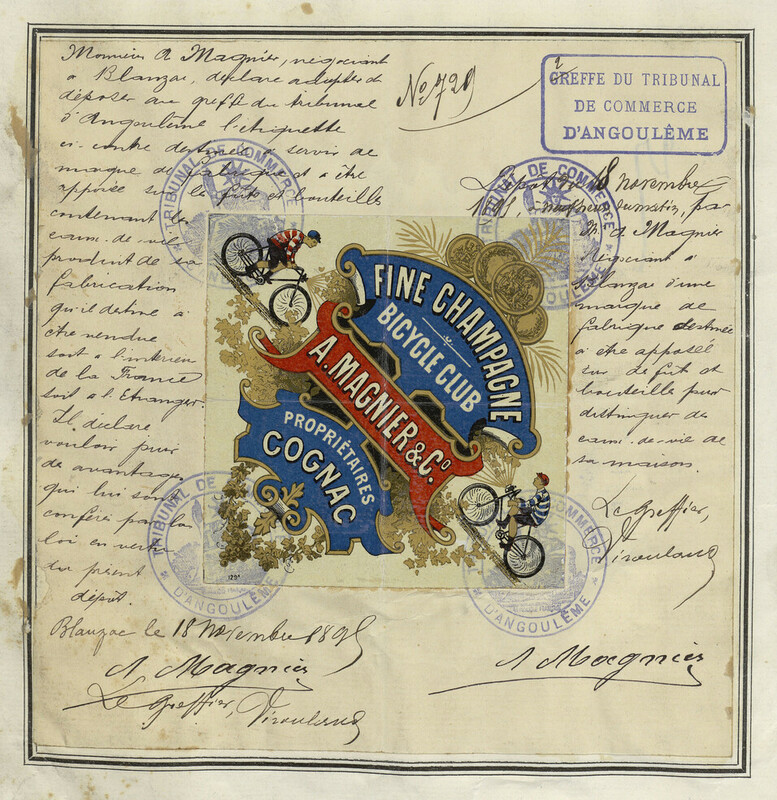 Monsieur A Magnier, négociant
à Blanzac, déclare adopter et
déposer au greffe du tribunal
d'Angoulême l'étiquette
ci-contre destinée à servir de
marque de fabrique et à être
apposée sur les fûts et bouteilles
contenant les
eaux-de-vie
produit de sa
fabrication
qu'il destine à
être vendue
soit à l'intérieur
de la France
soit à l'Etranger.
Il déclare
vouloir jouir
des avantages
qui lui sont
conférés par la
loi en vertu
du présent
dépôt.
Blanzac le 18 Novembre 1895
A Magnier
Le Greffier, Virouland
No 729
GREFFE DU TRIBUNAL
DE COMMERCE
D'ANGOULÊME
Dépôt du 18 novembre
1895, heures du matin, par
M. A Magnier
Négociant à
Blanzac d'une
marque de
fabrique destinée
à être apposée
sur les fût et
bouteilles pour
distinguer les
eaux-de-vie de
sa maison.
Le Greffier,
Virouland
A Magnier
FINE CHAMPAGNE
BICYCLE CLUB
A. MAGNIER & Co
PROPRIÉTAIRES
COGNAC
TRIBUNAL DE COMMERCE
TRIBUNAL DE COMMERCE
D'ANGOULÊME
TRIBUNAL DE COMMERCE
D'ANGOULÊME
COMMERCE
D'ANGOULÊME